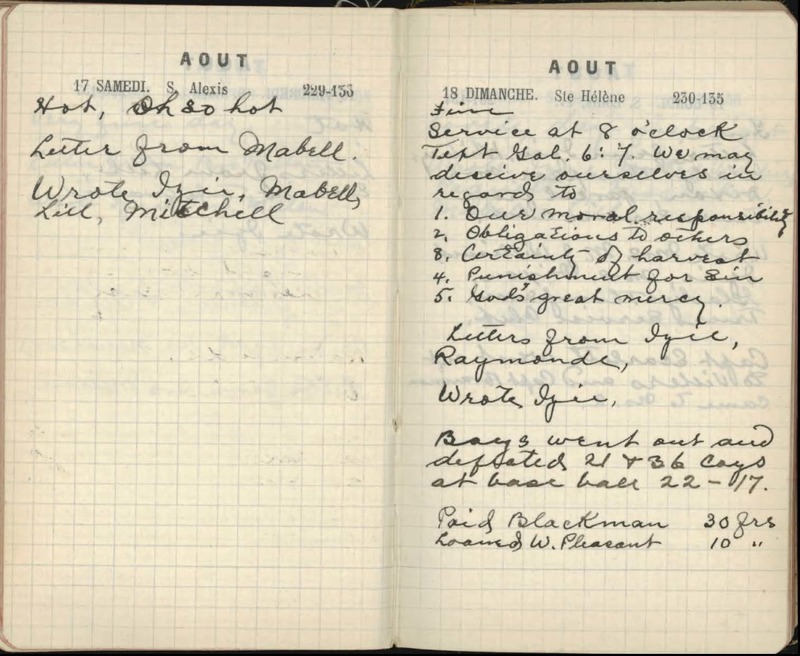 AOUT
17 SAMEDI. S. Alexis 229-133
Hot, Oh so hot
Letter from Mabell.
Wrote Izie, Mabell,
Lill, Mitchell
AOUT
18 DIMANCHE. Ste Hélène 230-135
Fine
Service at 8 o'clock
Text Gal. 6:7. We may
deceive ourselves in
regards to
1. Our moral responsibility
2. Obligations to others
3. Certainty of harvest
4. Punishment for sin
5. God's great mercy.
Letters from Izie,
Raymonde,
Wrote Izie,
Boys went out and
defeated 21 & 36 Coys
at base ball 22-17.
Paid Blackman 30 frs
Loaned W. Pleasant 10 "